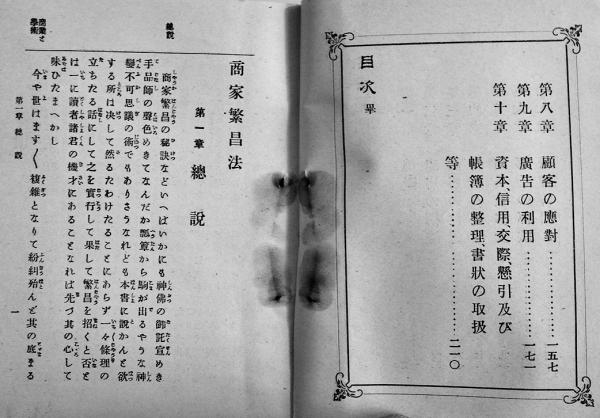 第八章 顧客の應對………………一五七
第九章 廣告の利用………………一七一
第十章 資本、信用、交際、懸引及び
帳簿の整理、書狀の取扱
等………………二一〇
目次 畢
商家繁昌法
第一章 總說
商家繁昌の秘訣などいへばいかにも神佛の御託宣めき
手品師の聲色めきてなんだか瓢簞から駒が出るやうな神
變不可思議の術でもありさうなれども本書に說かんと欲
する所は決して然るたわけたることにあらず一々條理の
立ちたる話にして之を實行して果して繁昌を招くと否と
は一に讀者諸君の機才にあることなれば先づ其の心して
味ひたまへかし
今や世はます〱複雜となりて紛糾殆んど其の底まる
總說
商業と學術
第一章 總說
一